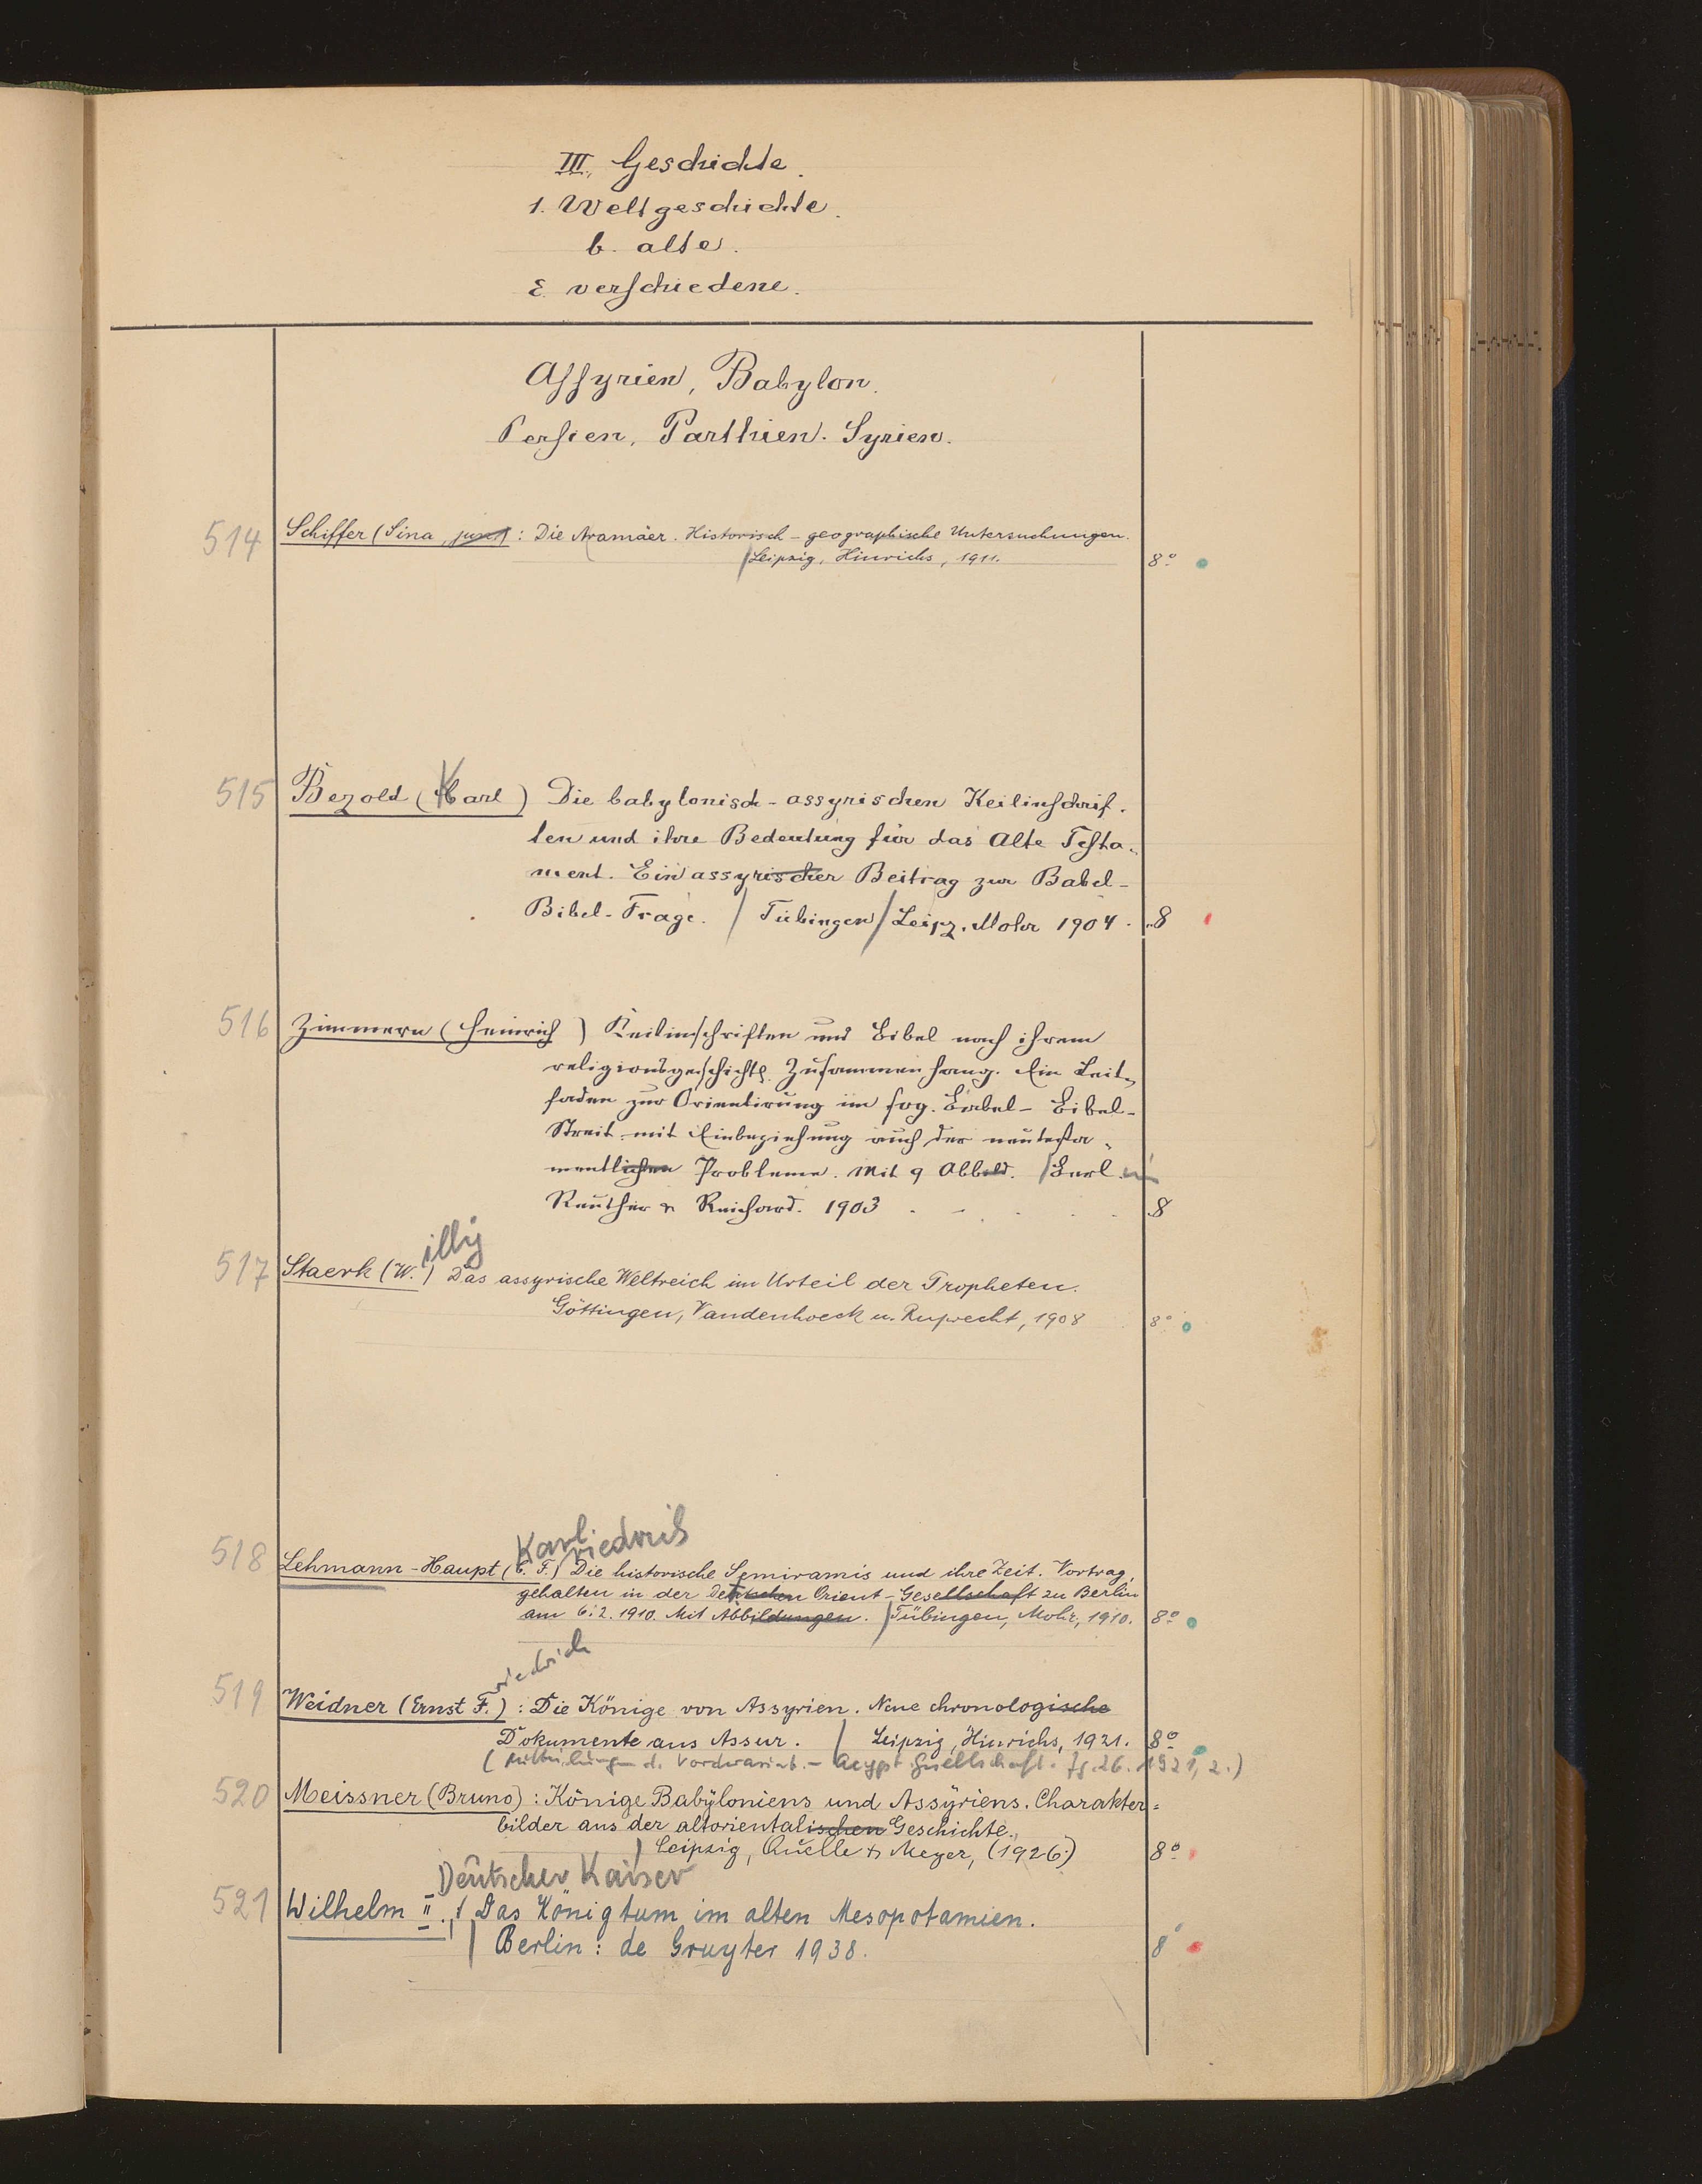 III. Geschichte.
1. Weltgeschichte.
b. alte.
ε. verschiedene.
Assyrien, Babylon.
Persien, Parthien. Syrien.
514 Schiffer (Sina, jun.) : Die Aramäer. Historisch-geographische Untersuchungen.
Leipzig, Hinrichs, 1911. 8°
515 Bezold (Karl) Die babylonisch-assyrischen Keilinschrif-
ten und ihre Bedeutung für das Alte Testa-
ment. Ein assyrischer Beitrag zur Babel-
Bibel-Frage. / Tübingen / Leipz. Mohr 1904. 8
516 Zimmern (Heinrich) Keilinschriften und Bibel nach ihrem
religionsgeschichtl. Zusammenhang. Ein Leit-
faden zur Orientirung im sog. Babel-Bibel-
Streit mit Einbeziehung auch der neutesta-
mentlichen Probleme. Mit 9 Abbild. / Berl.
Reuther & Reichard. 1903 8
illy
517 Staerk (W.) Das assyrische Weltreich im Urteil der Propheten.
Göttingen, Vandenhoeck u. Ruprecht, 1908 8°
Karl riedrich
518 Lehmann-Haupt (C. F.) Die historische Semiramis und ihre Zeit. Vortrag,
gehalten in der Deutschen Orient-Gesellschaft zu Berlin
am 6.2.1910. Mit Abbildungen. / Tübingen, Mohr, 1910. 8°
riedrich
519 Weidner (Ernst F.) : Die Könige von Assyrien. Neue chronologische
Dokumente aus Assur. / Leipzig, Hinrichs, 1921. 8°
(Mitteilungen d. Vorderasiat.-Aegypt. Gesellschaft. Jg. 26. 1921, 2.)
520 Meissner (Bruno) : Könige Babyloniens und Assyriens. Charakter-
bilder aus der altorientalischen Geschichte.
/ Leipzig, Quelle & Meyer, (1926) 8°
Deutscher Kaiser
521 Wilhelm II. : Das Königtum im alten Mesopotamien.
/ Berlin: de Gruyter 1938. 8°